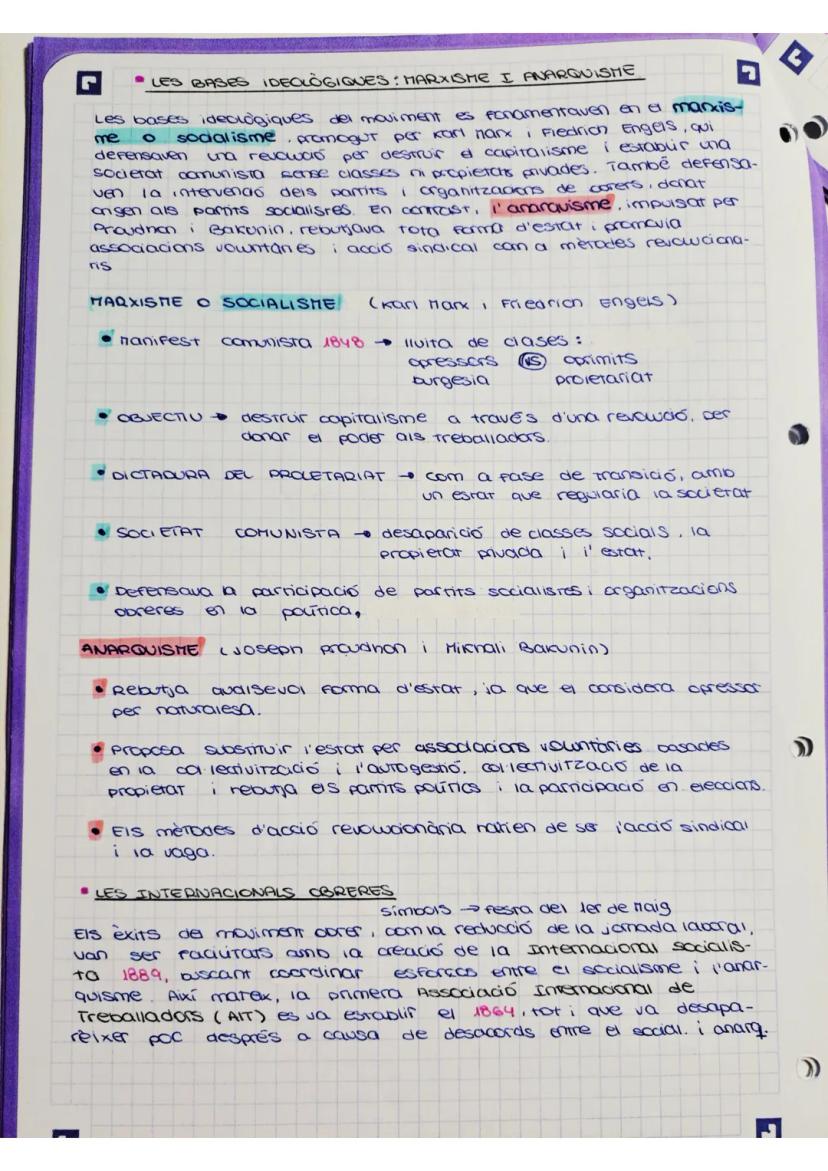 • LES BASES IDEOLÒGIQUES: MARXISME I ANARQUISME
Les bases ideològiques del moviment es fonamentaven en el marxis-
me o socialisme, promogut per Karl Marx i Fiedrich Engels, qui
defensaven una revolució per destruir el capitalisme i establir una
societat comunista sense classes ni propietats privades. També defensa-
ven la intervenció dels partits i organitzacions de obrers, donat
origen als partits socialistes. En contrast, l'anarquisme, impulsat per
Proudhon i Bakunin, rebutjava tota forma d'estat i promovia
associacions voluntàries i acció sindical com a mètodes revoluciona-
ris
MARXISME O SOCIALISME (Karl Marx i Friedrich Engels)
• Manifest comunista 1848 → lluita de clases:
opressors VS oprimits
burgesia proletariat
• OBJECTIU → destruir capitalisme a través d'una revolució, per
donar el poder als treballadors.
• DICTADURA DEL PROLETARIAT → com a fase de transició, amb
un estat que regularia la societat
• SOCIETAT COMUNISTA → desaparició de classes socials, la
propietat privada i l'estat.
• Defensava la participació de partits socialistes i organitzacions
obreres en la política.
ANARQUISME (Joseph Proudhon i Mikhali Bakunin)
• Rebutja qualsevol forma d'estat, ja que el considera opressor
per naturalesa.
• Proposa substituir l'estat per associacions voluntàries basades
en la col·lectivització i l'autogestió. Col·lectivització de la
propietat i rebutja els partits polítics i la participació en eleccions.
• Els mètodes d'acció revolucionària haurien de ser l'acció sindical
i la vaga.
• LES INTERNACIONALS OBRERES
símbols → festa del 1er de Maig
Els èxits del moviment obrer, com la reducció de la jornada laboral,
van ser facilitats amb la creació de la Internacional Socialis-
ta 1889, buscant coordinar esforços entre el socialisme i l'anar-
quisme. Així mateix, la primera Associació Internacional de
Treballadors (AIT) es va establir el 1864, tot i que va desapa-
rèixer poc després a causa de desacords entre el social. i anarq.